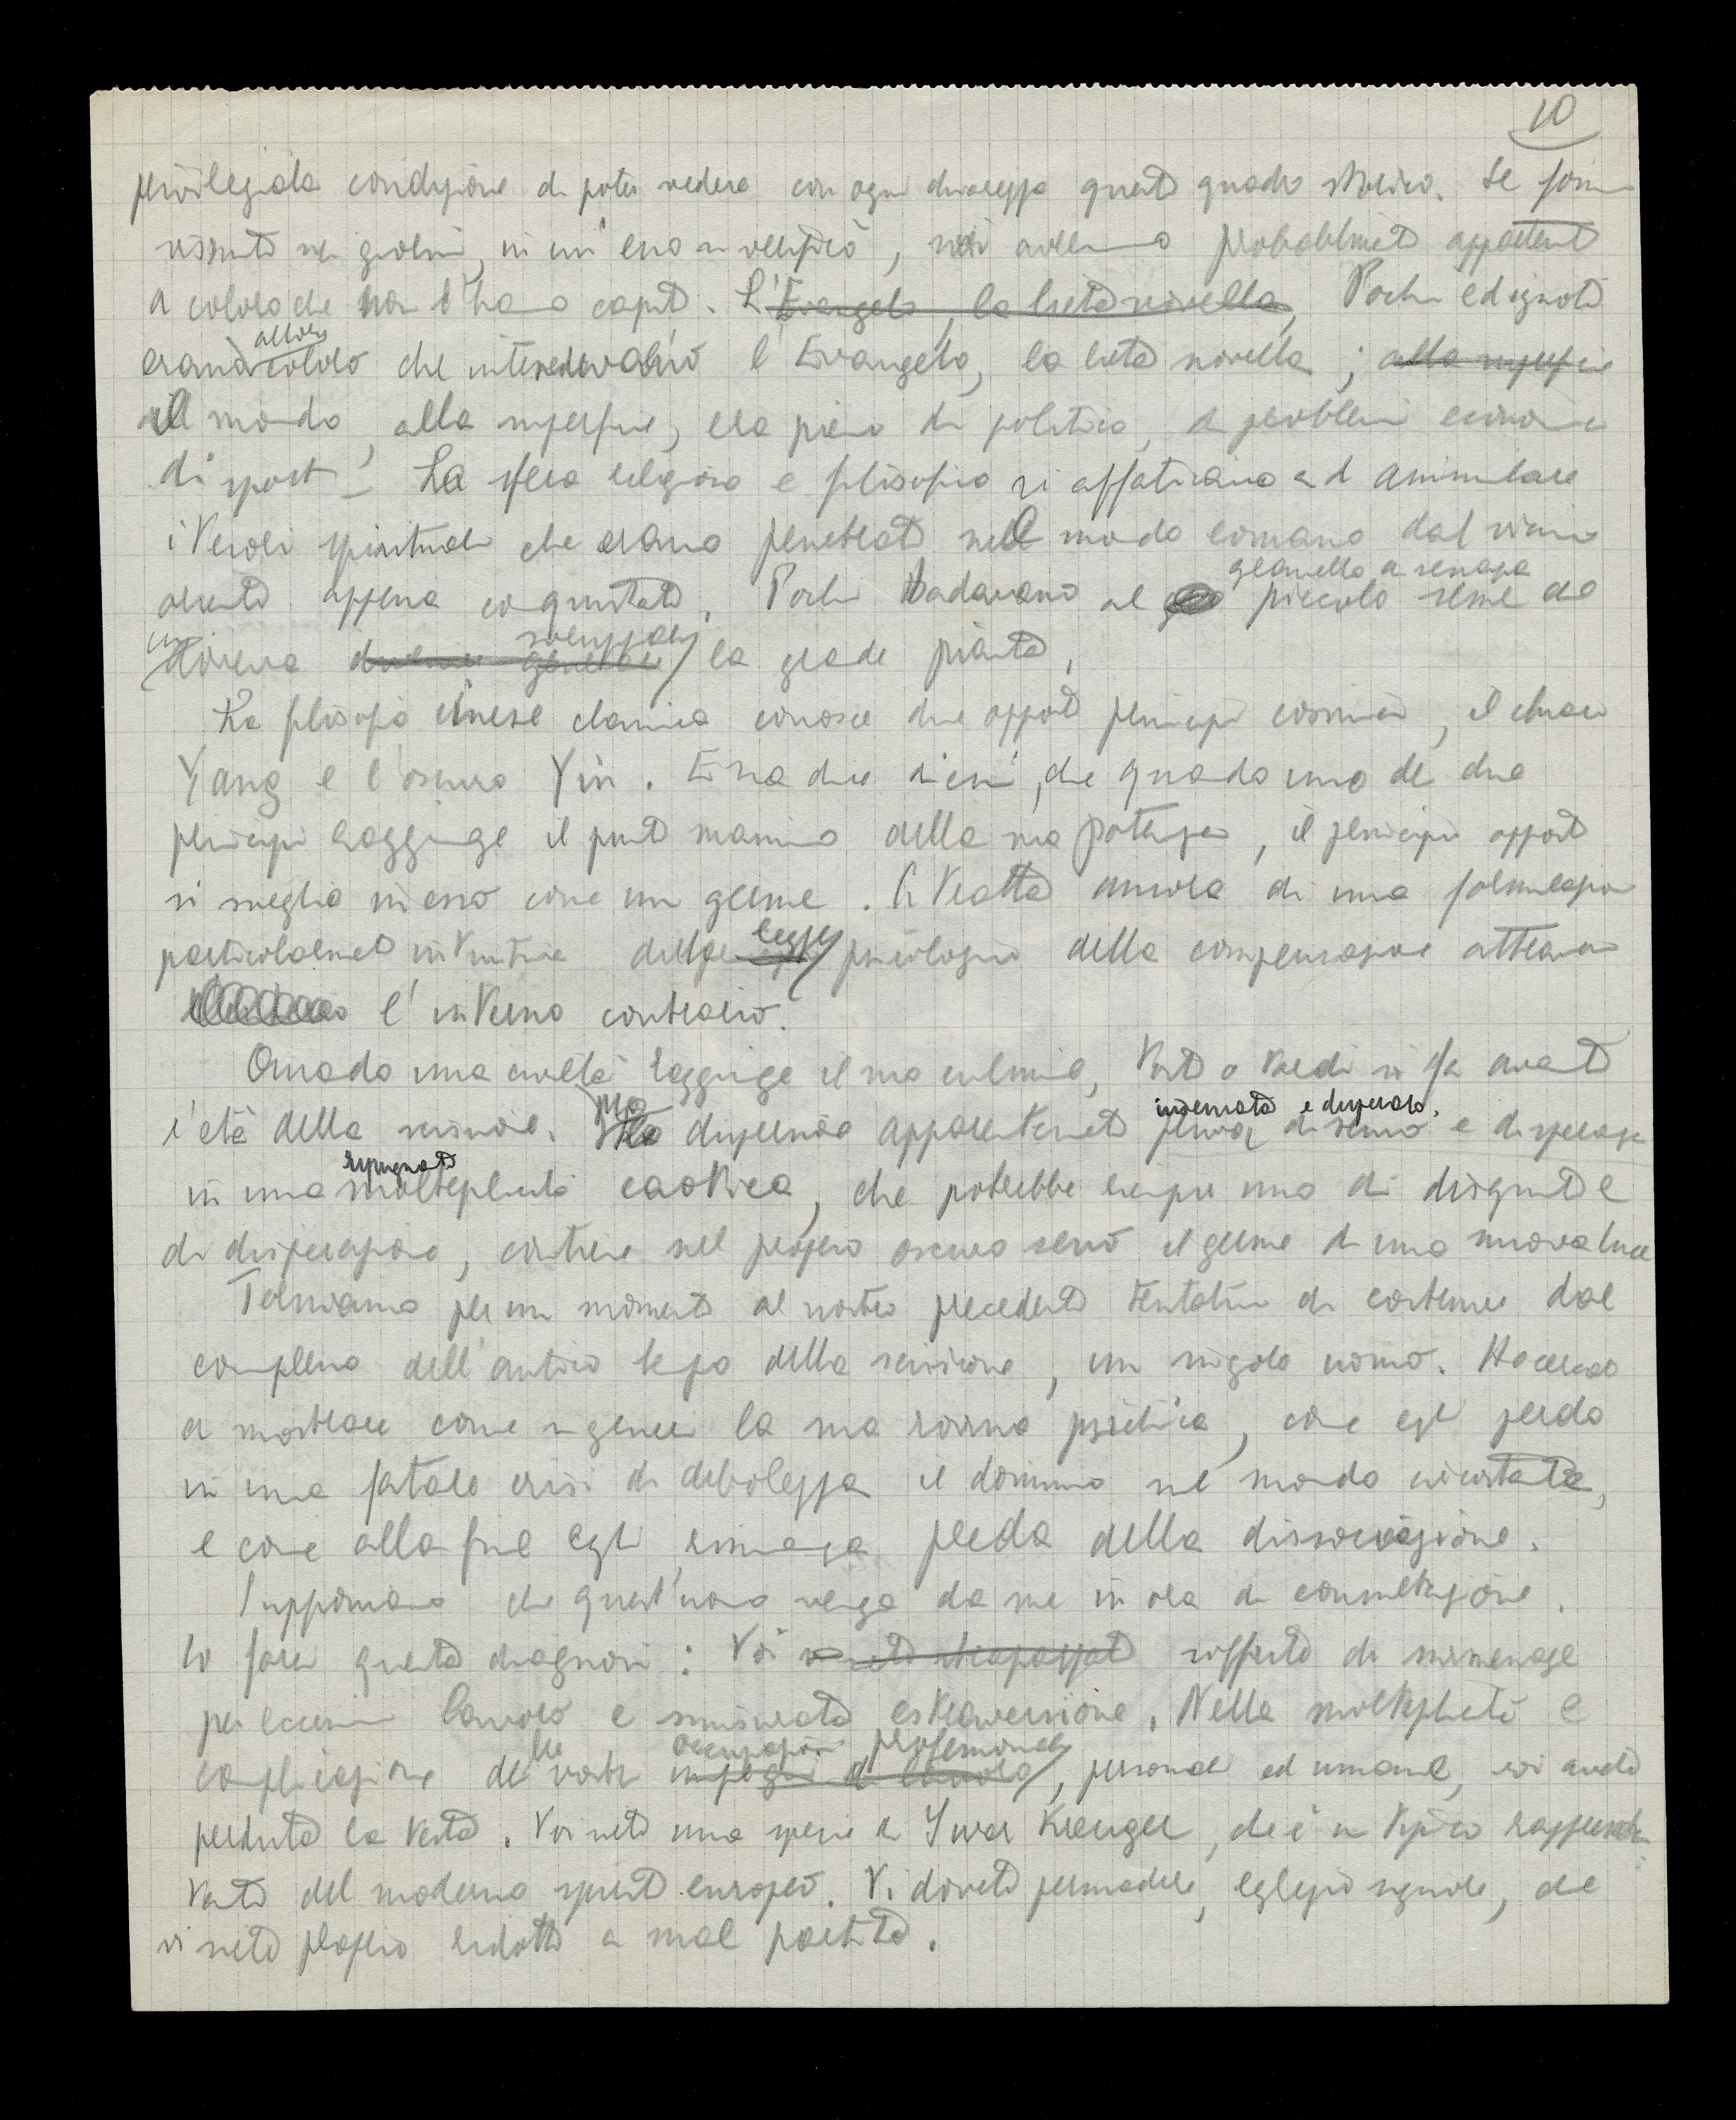 10
privilegiata condizione di poter vedere con ogni chiarezza questo quadro storico. Se fossimo
vissuti nei giorni, in cui esso si verificò, noi avremmo probabilmente appartenuto
a coloro che non l'hanno capito. L'Evangelo, la lieta novella, Pochi ed ignoti
erano allora coloro che intendevano l'Evangelo, la lieta novella; alla superficie
il mondo, alla superficie, era pieno di politica, di problemi economici
di sport. La sfera religiosa e filosofica si affaticava ad assimilare
i tesori spirituali che erano penetrati nel mondo romano dal vicino
oriente appena conquistato. Pochi badavano al piccolo seme granello di senapa da
cui doveva svilupparsi la grande pianta.
La filosofia cinese classica conosce due opposti principi cosmici, il chiaro
Yang e l'oscuro Yin. Essa dice di essi, che quando uno dei due
principi raggiunge il punto massimo della sua potenza, il principio opposto
si sveglia in esso come un germe. Si tratta ancora di una formulazione
particolarmente intuitiva della legge psicologica della compensazione attraverso
l'interno contrario.
Quando una civiltà raggiunge il suo culmine, tosto o tardi si fa avanti
l'età della scissione. Ma la dispersione apparentemente priva di senso e disperata insensata e disperata,
in una ripugnante molteplicità caotica, che potrebbe riempire uno di disgusto e
di disperazione, contiene nel proprio oscuro seno il germe di una nuova luce
Torniamo per un momento al nostro precedente tentativo di costruire dal
complesso dell'antico tempo della scissione, un singolo uomo. Ho cercato
di mostrare come si generi la sua rovina psichica, come egli perda
in una fatale crisi di debolezza il dominio sul mondo circostante,
e come alla fine egli rimanga preda della dissociazione.
Supponiamo che quest'uomo venga da me in ora di consultazione.
Io farei questa diagnosi: Voi siete strapazzato soffrite di surmenage
per eccessivo lavoro e smisurata estraversione. Nella molteplicità e
complicazione delle vostre impegni di lavoro occupazioni professionali, personali ed umane, voi avete
perduto la testa. Voi siete una specie di Ivar Kreuger, che è un tipico rappresen-
tante del moderno spirito europeo. Vi dovete persuadere, egregio signore, che
vi siete proprio ridotto a mal partito.